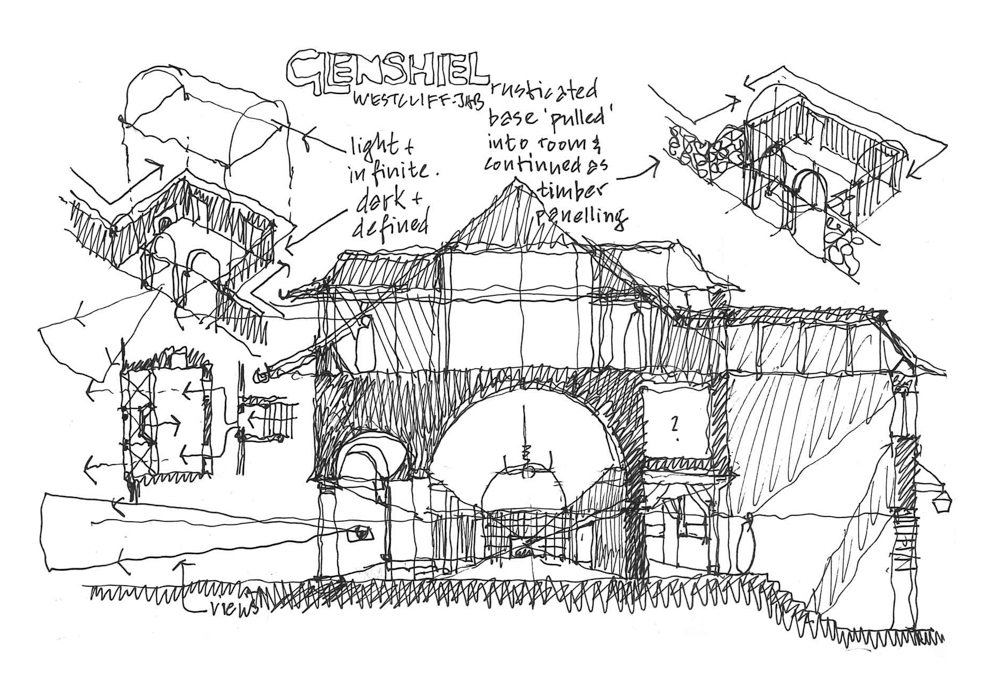 GLENSHIEL
WESTCLIFF-JHB
light +
infinite.
dark +
defined
rusticated
base 'pulled'
into room &
continued as
timber
panelling
?
views